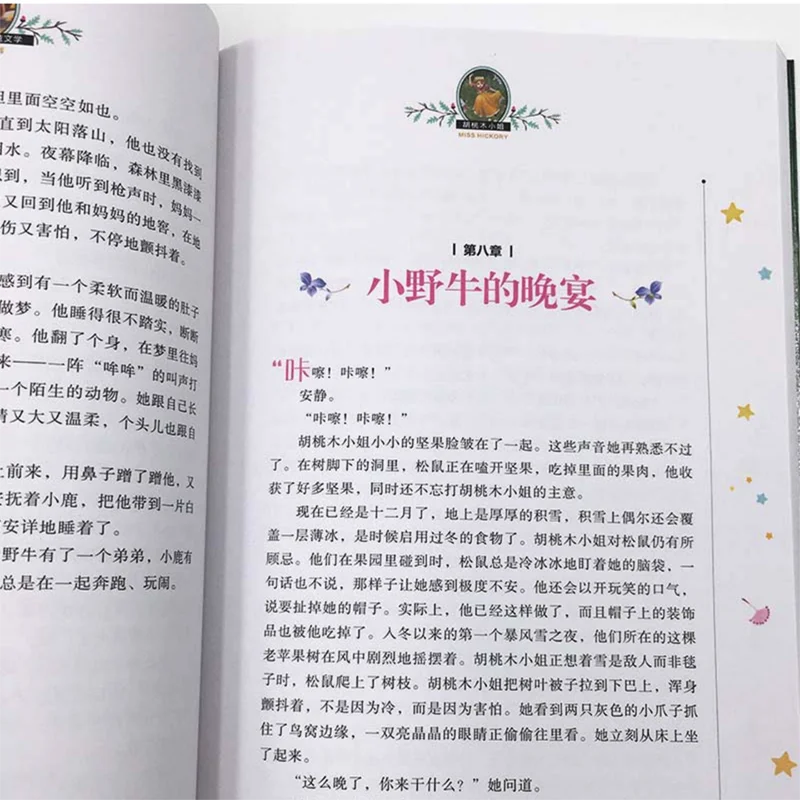 文学
里面空空如也。
直到太阳落山，他也没有找到
水。夜幕降临，森林里黑漆漆
到，当他听到枪声时，妈妈一
又回到他和妈妈的地窖，在地
伤又害怕，不停地颤抖着。
感到有一个柔软而温暖的肚子
做梦。他睡得很不踏实，断断
寒。他翻了个身，在梦里往妈
来——一阵“哞哞”的叫声打
一个陌生的动物。她跟自己长
情又大又温柔，个头儿也跟自
上前来，用鼻子蹭了蹭他，又
抚着小鹿，把他带到一片白
安详地睡着了。
野牛有了一个弟弟，小鹿有
总是在一起奔跑、玩闹。
胡桃木小姐
MISS HICKORY
第八章
小野牛的晚宴
“咔嚓！咔嚓！”
安静。
“咔嚓！咔嚓！”
胡桃木小姐小小的坚果脸皱在了一起。这些声音她再熟悉不过
了。在树脚下的洞里，松鼠正在嗑开坚果，吃掉里面的果肉，他收
获了好多坚果，同时还不忘打胡桃木小姐的主意。
现在已经是十二月了，地上是厚厚的积雪，积雪上偶尔还会覆
盖一层薄冰，是时候启用过冬的食物了。胡桃木小姐对松鼠仍有所
顾忌。他们在果园里碰到时，松鼠总是冷冰冰地盯着她的脑袋，一
句话也不说，那样子让她感到极度不安。他还会以开玩笑的口气，
说要扯掉她的帽子。实际上，他已经这样做了，而且帽子上的装饰
品也被他吃掉了。入冬以来的第一个暴风雪之夜，他们所在的这棵
老苹果树在风中剧烈地摇摆着。胡桃木小姐正想着雪是敌人而非毯
子时，松鼠爬上了树枝。胡桃木小姐把树叶被子拉到下巴上，浑身
颤抖着，不是因为冷，而是因为害怕。她看到两只灰色的小爪子抓
住了鸟窝边缘，一双亮晶晶的眼睛正偷偷往里看。她立刻从床上坐
了起来。
“这么晚了，你来干什么？”她问道。